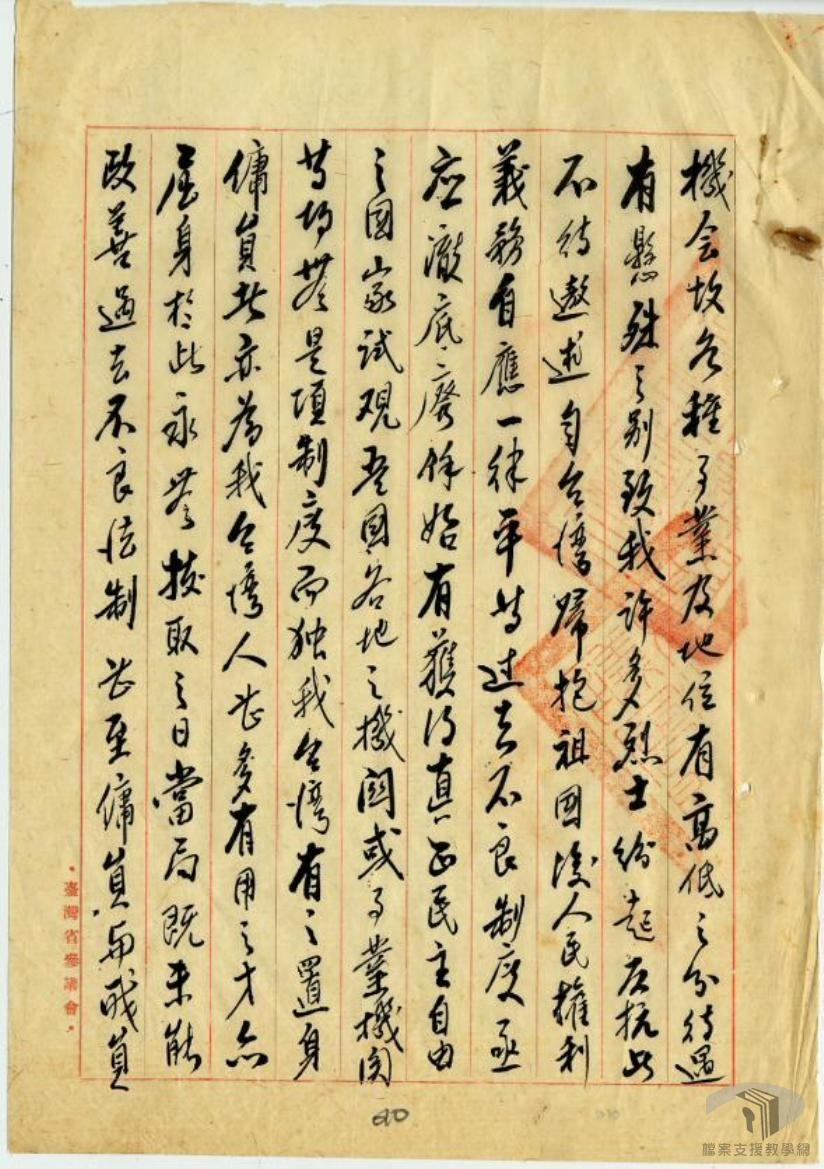 機会故各種事業及地位有高低之分待遇
有懸殊之别致我許多烈士紛起反抗此
不待遨遊自台湾歸抱祖國後人民權利
義務自應一律平等过去不良制度亟
应澈底廢除始有獲得真正民主自由
之國家試观吾國各地之機関或事業機関
等均無是項制度而独我台湾有之置身
傭員者亦為我台湾人甚多有用之才亦
屈身於此永無抜取之日當局既未能
改善過去不良法制甚至傭員與職員
・臺灣省參議會・
60
檔案支援教學網